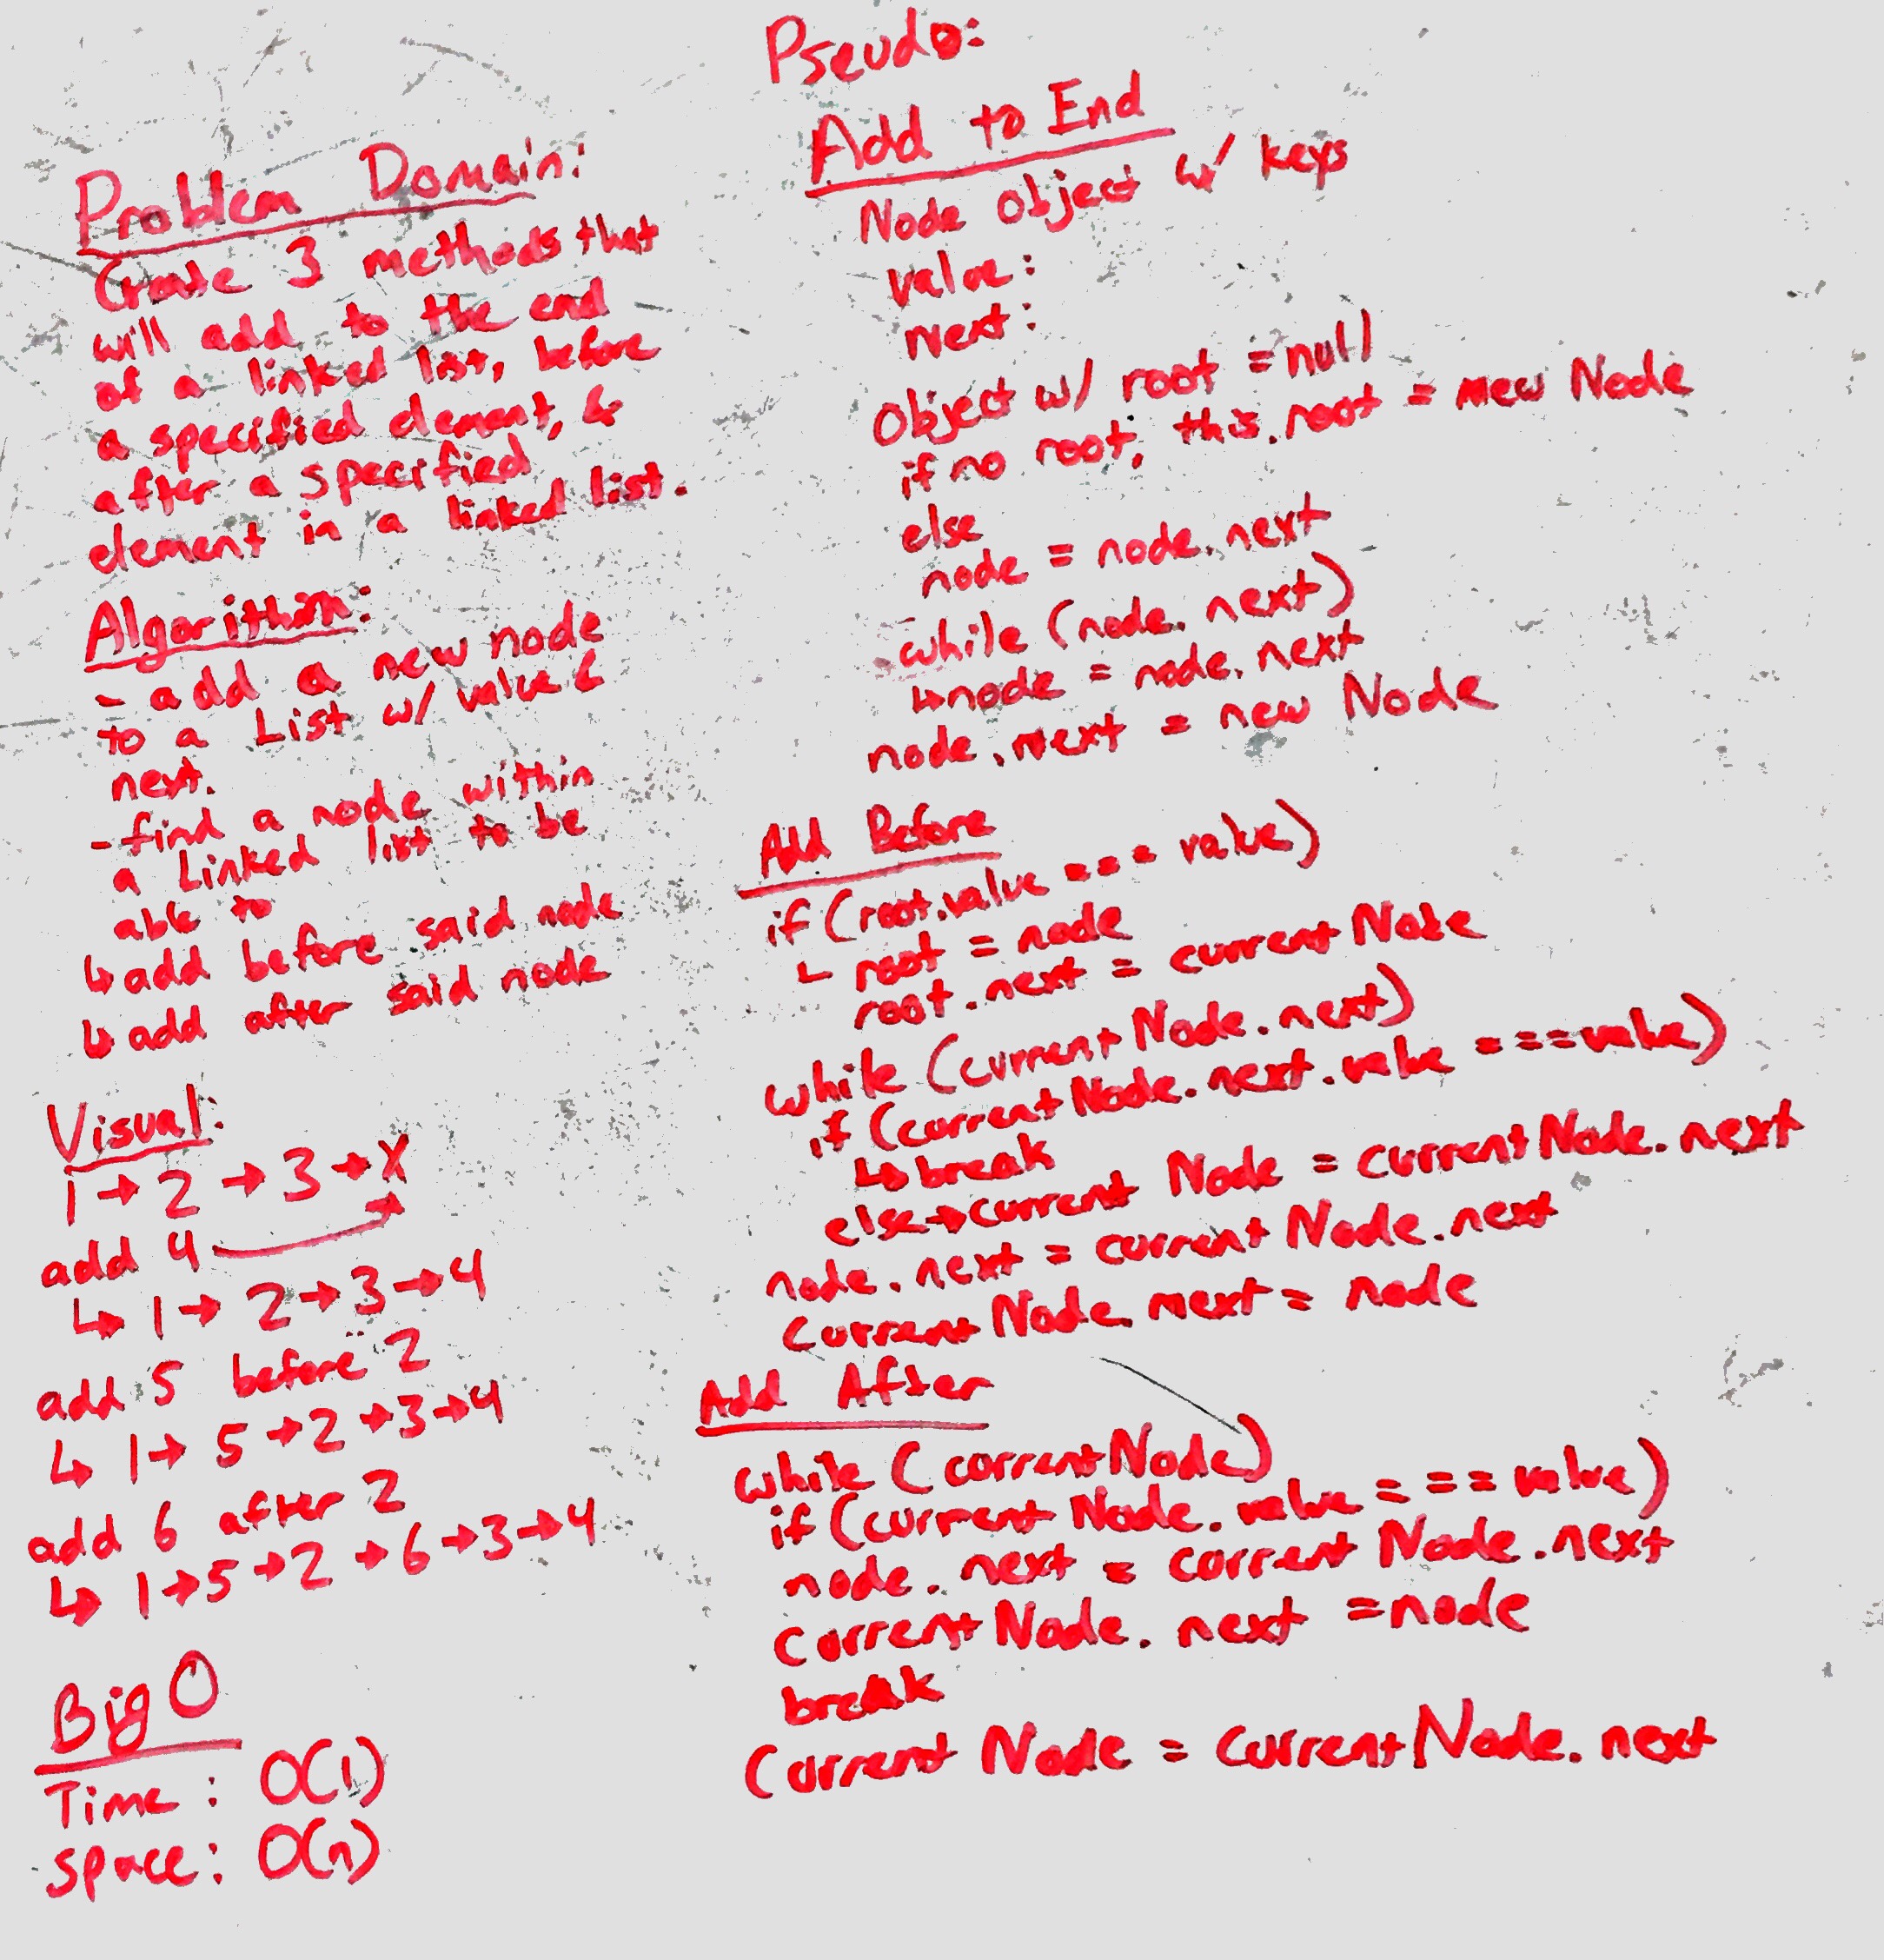 Problem Domain:
Create 3 methods that
will add to the end
of a linked list, before
a specified element, &
after a specified
element in a linked list.
Algorithim:
- add a new node
to a List w/ value &
next.
- find a node within
a Linked list to be
able to
↳ add before said node
↳ add after said node
Visual:
1 → 2 → 3 → X
add 4
↳ 1 → 2 → 3 → 4
add 5 before 2
↳ 1 → 5 → 2 → 3 → 4
add 6 after 2
↳ 1 → 5 → 2 → 6 → 3 → 4
Big O
Time : O(1)
space : O(n)
Pseudo:
Add to End
Node object w/ keys
value :
next :
Object w/ root = null
if no root, this.root = new Node
else
node = node.next
while (node.next)
↳ node = node.next
node.next = new Node
Add Before
if (root.value === value)
↳ root = node
root.next = current Node
while (current Node.next)
if (current Node.next.value === value)
↳ break
else → current Node = current Node.next
node.next = current Node.next
Current Node.next = node
Add After
while (current Node)
if (current Node.value === value)
node.next = current Node.next
current Node.next = node
break
Current Node = current Node.next